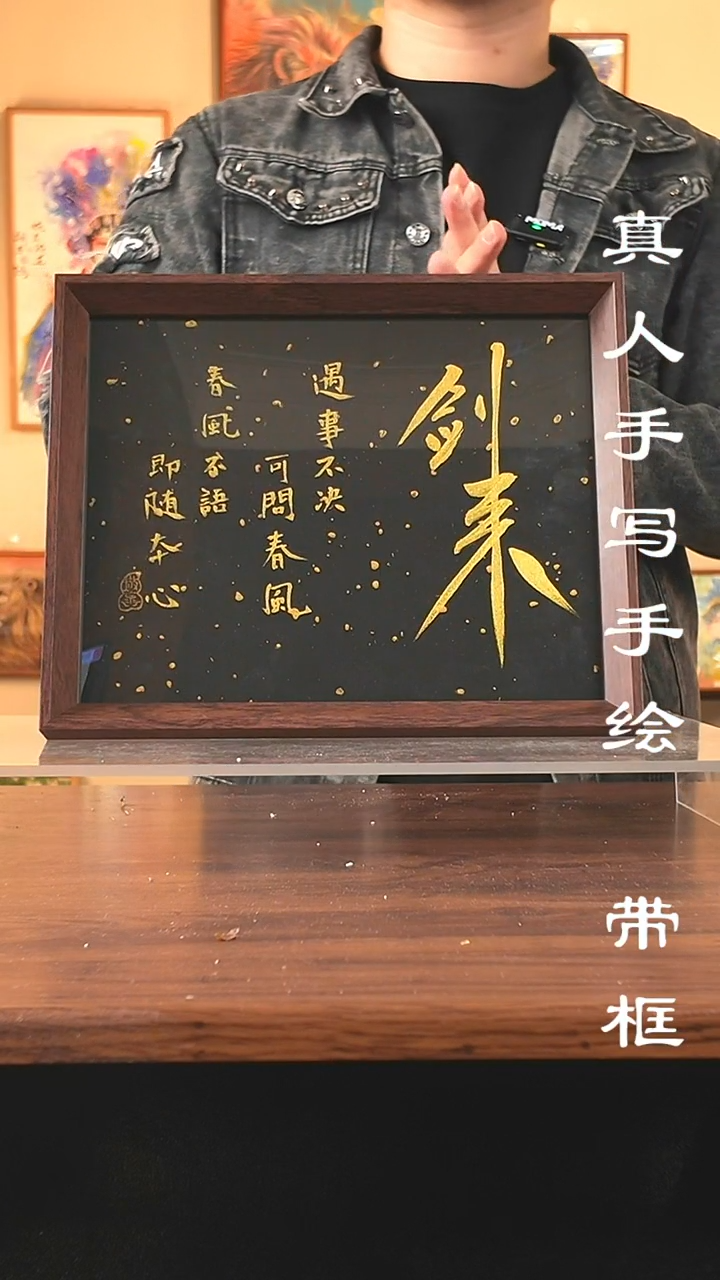 剑来
遇事不决
可問春風
春風不語
即随本心
真人手写手绘
带框